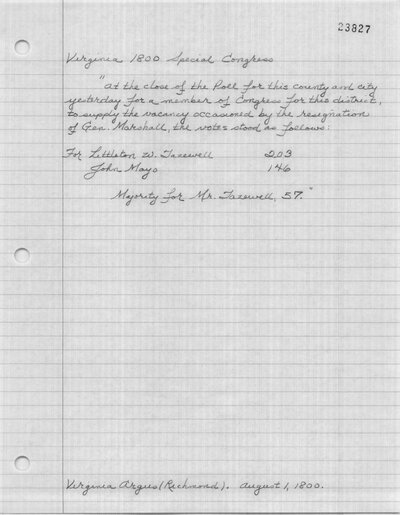 23827
Virginia 1800 Special Congress
"At the close of the Poll for this county and city
yesterday for a member of Congress for this district,
to supply the vacancy occasioned by the resignation
of Gen. Marshall, the votes stood as follows:
For Littleton W. Tazewell 203
John Mayo 146
Majority for Mr. Tazewell, 57."
Virginia Argus (Richmond). August 1, 1800.